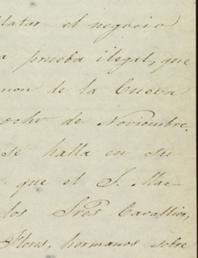 latar el negocio
a prueba ilegal, que
de la Cueva
ocho de Noviembre,
se halla en su
que el S. Mac-
los Sres Cavallier,
Flores, hermanos sobre